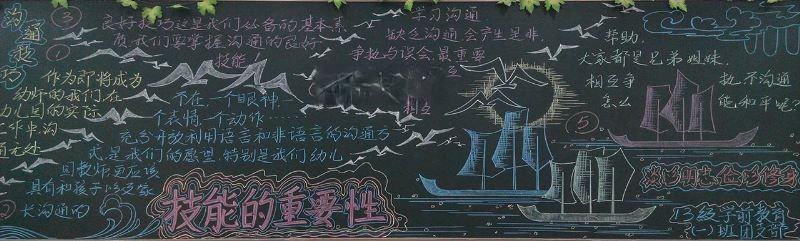 沟通技巧
①
作为即将成为
幼师的我们,在
幼儿园的实际
工作中沟
③
良好技巧这是我们必备的基本素
质我们要掌握沟通的良好
技能
不在,一个眼神…
一个表情,一个动作……
充分开放利用语言和非语言的沟通方
式是我们的愿望.特别是我们幼儿
园教师更应该
具有和孩子
②
长沟通的
学习沟通
缺乏沟通会产生是非,
争执与误会,最重要
帮助,
大家都是兄弟姐妹,
相互争
执不沟通
怎么
能和平呢?
⑤
技能的重要性
13级学前教育
(一)班团支部